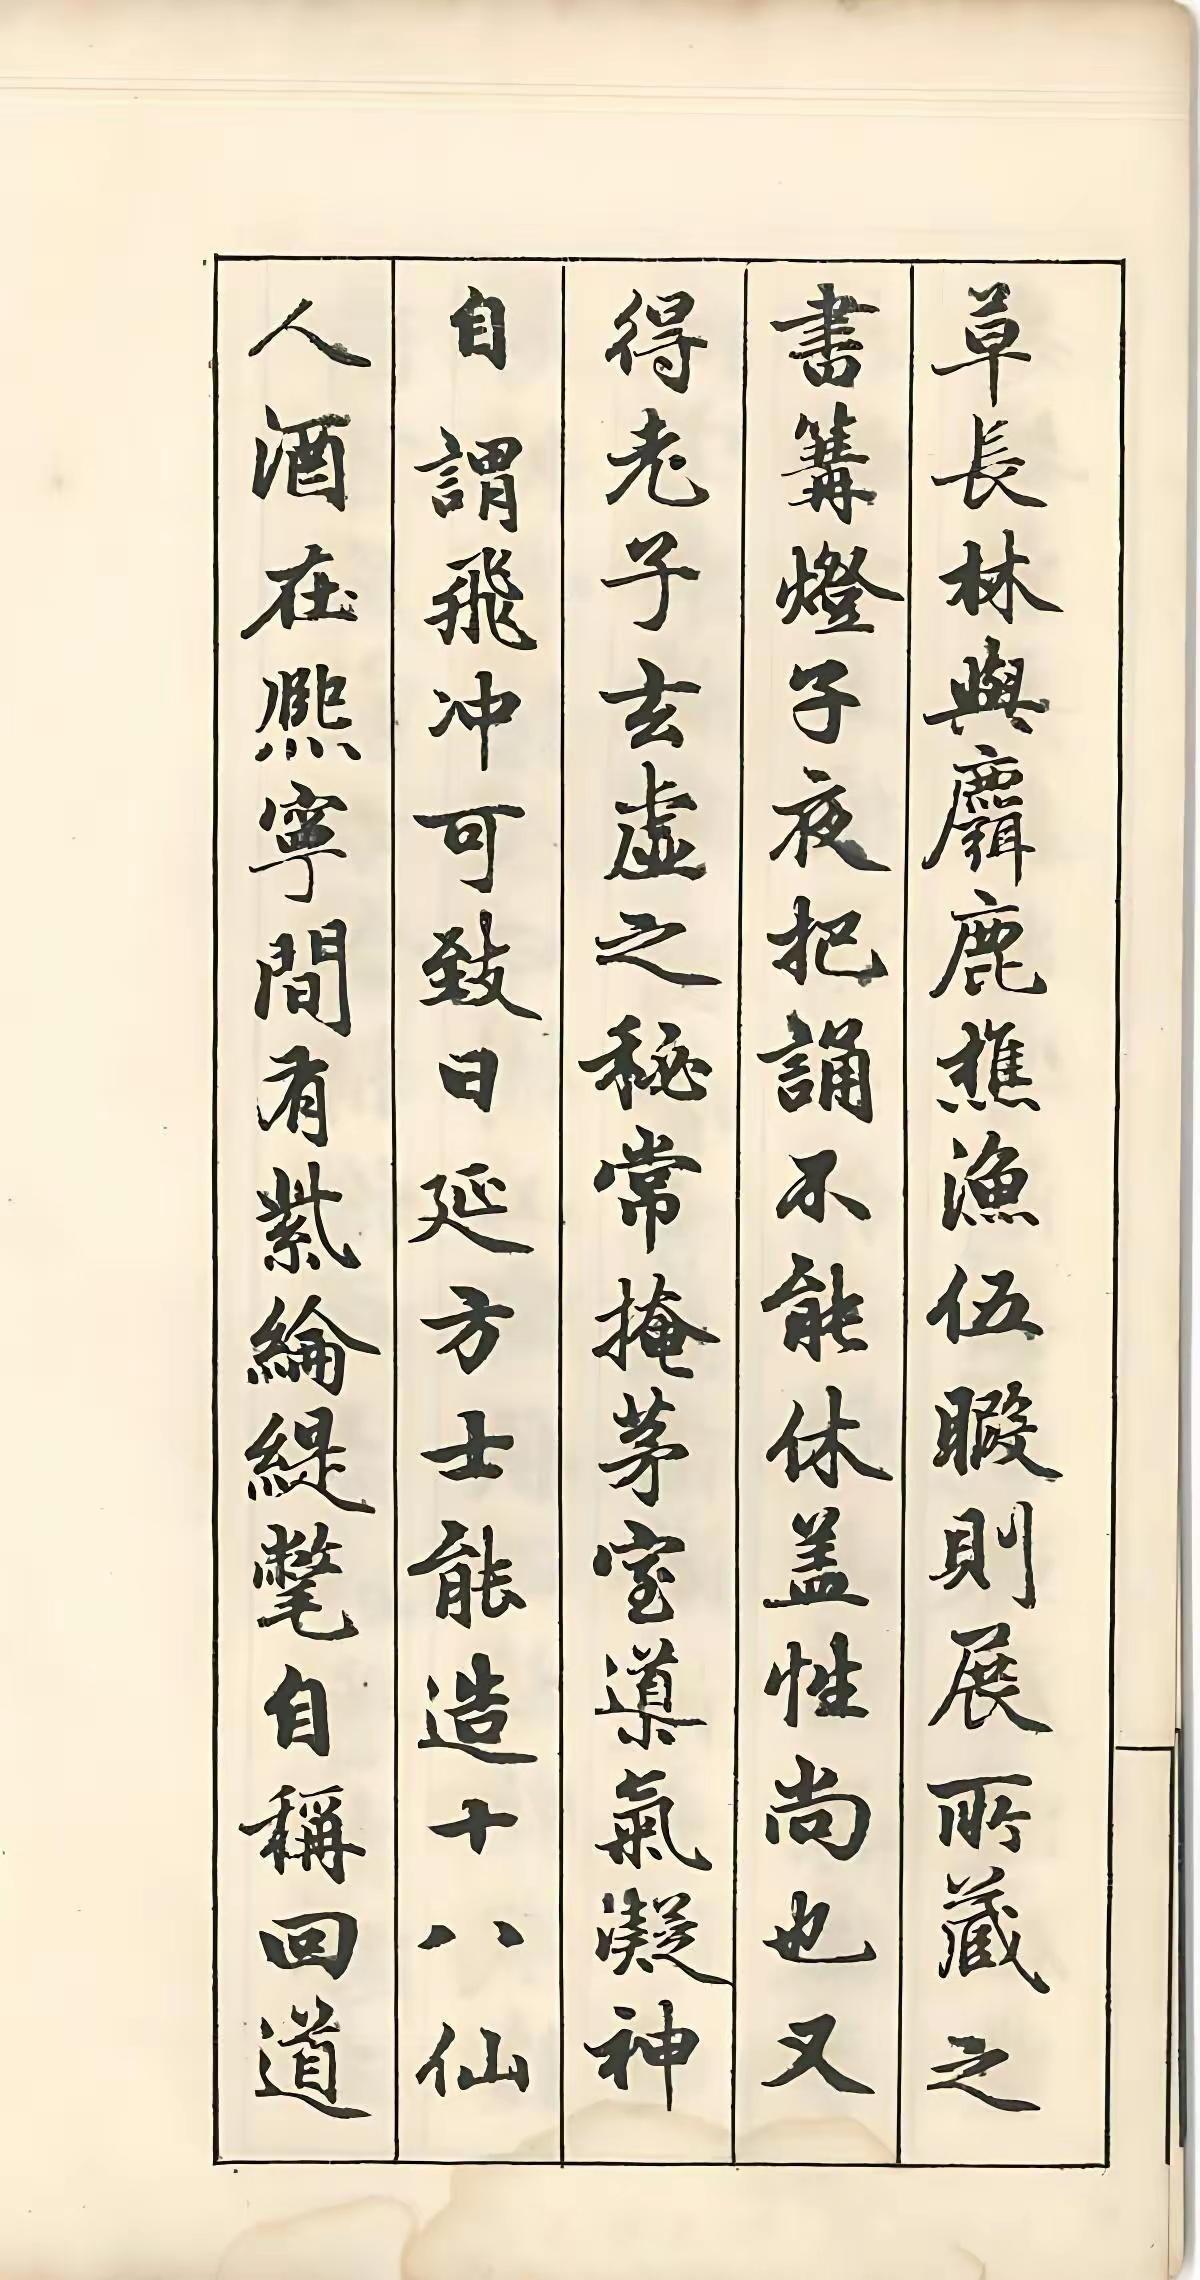 草長林與麛鹿樵漁伍暇則展所藏之
書篝燈子夜把誦不能休盖性尚也又
得老子玄虛之秘常掩茅室導氣凝神
自謂飛冲可致日延方士能造十八仙
人酒在熈寧間有紫綸緹氅自稱回道